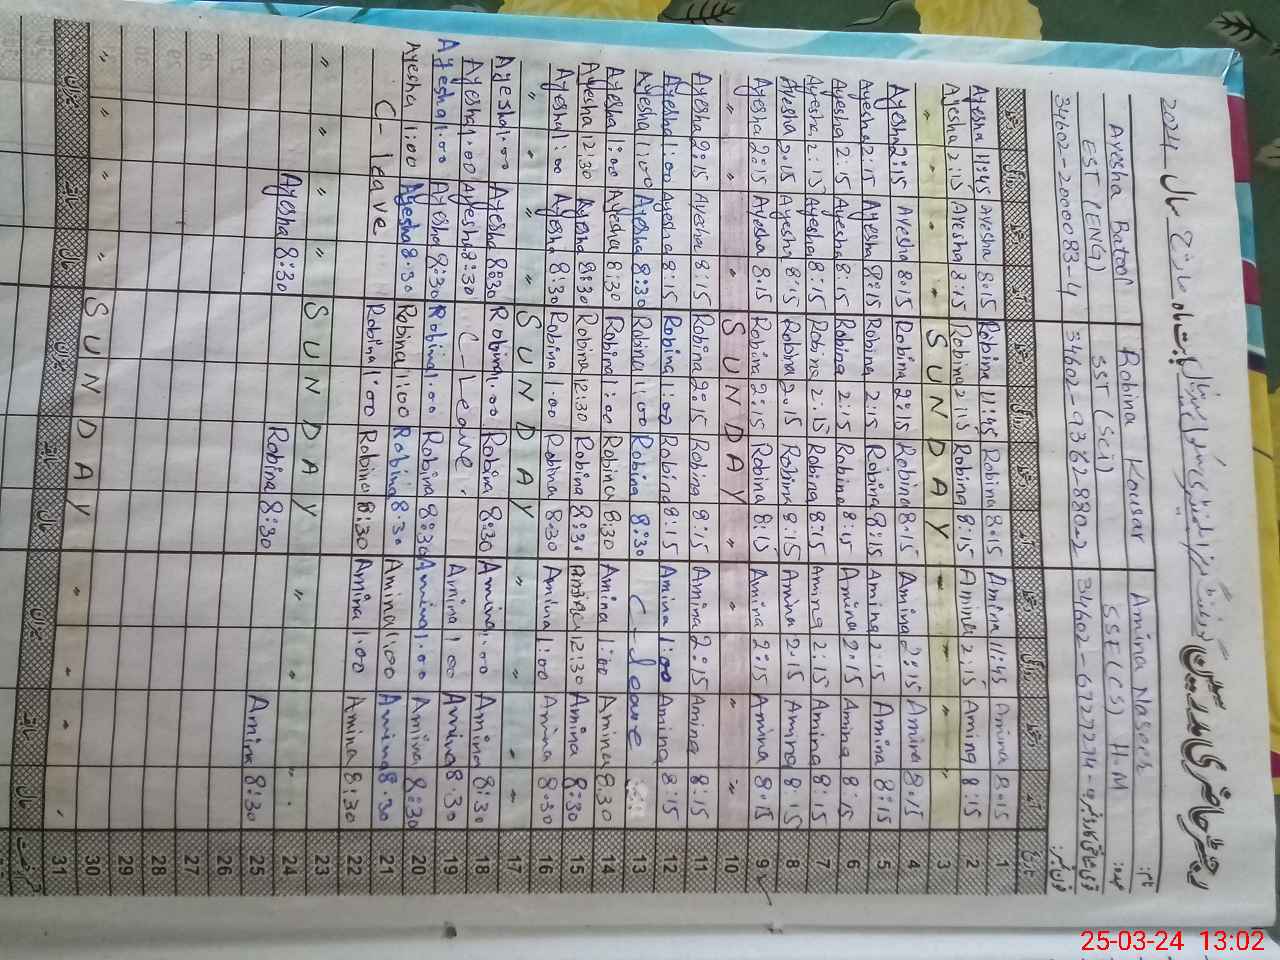 2024
Ayesha Batool Robina Kousar Amina Naseer نام:
EST (ENG) SST (Sci) SSE (CS) H.M عہدہ:
34602-2000083-4 34602-9362880-2
Ayesha 11:45 Ayesha 8:15 Robina 11:45 Robina 8:15 Amina 11:45 Amina 8:15 1
Ayesha 2:15 Ayesha 8:15 Robina 2:15 Robina 8:15 Amina 2:15 Amina 8:15 2
" " " " S U N D A Y " " " " 3
Ayesha 2:15 Ayesha 8:15 Robina 2:15 Robina 8:15 Amina 2:15 Amina 8:15 4
Ayesha 2:15 Ayesha 8:15 Robina 2:15 Robina 8:15 Amina 2:15 Amina 8:15 5
Ayesha 2:15 Ayesha 8:15 Robina 2:15 Robina 8:15 Amina 2:15 Amina 8:15 6
Ayesha 2:15 Ayesha 8:15 Robina 2:15 Robina 8:15 Amina 2:15 Amina 8:15 7
Ayesha 2:15 Ayesha 8:15 Robina 2:15 Robina 8:15 Amina 2:15 Amina 8:15 8
Ayesha 2:15 Ayesha 8:15 Robina 2:15 Robina 8:15 Amina 2:15 Amina 8:15 9
" " " S U N D A Y " " " " 10
Ayesha 2:15 Ayesha 8:15 Robina 2:15 Robina 8:15 Amina 2:15 Amina 8:15 11
Ayesha 1:00 Ayesha 8:15 Robina 1:00 Robina 8:15 Amina 1:00 Amina 8:15 12
Ayesha 1:00 Ayesha 8:30 Robina 1:00 Robina 8:30 C-leave 13
Ayesha 1:00 Ayesha 8:30 Robina 1:00 Robina 8:30 Amina 1:00 Amina 8:30 14
Ayesha 12:30 Ayesha 8:30 Robina 12:30 Robina 8:30 Amina 12:30 Amina 8:30 15
Ayesha 1:00 Ayesha 8:30 Robina 1:00 Robina 8:30 Amina 1:00 Amina 8:30 16
" " " " S U N D A Y " " " " 17
Ayesha 1:00 Ayesha 8:30 Robina 1:00 Robina 8:30 Amina 1:00 Amina 8:30 18
Ayesha 1:00 Ayesha 8:30 C-Leave. Amina 1:00 Amina 8:30 19
Ayesha 1:00 Ayesha 8:30 Robina 1:00 Robina 8:30 Amina 1:00 Amina 8:30 20
Ayesha 1:00 Ayesha 8:30 Robina 1:00 Robina 8:30 Amina 1:00 Amina 8:30 21
C-leave Robina 1:00 Robina 8:30 Amina 1:00 Amina 8:30 22
23
" " " " S U N D A Y " " " 24
Ayesha 8:30 Robina 8:30 Amina 8:30 25
26
27
28
29
30
" " " " S U N D A Y " " " " 31
25-03-24 13:02